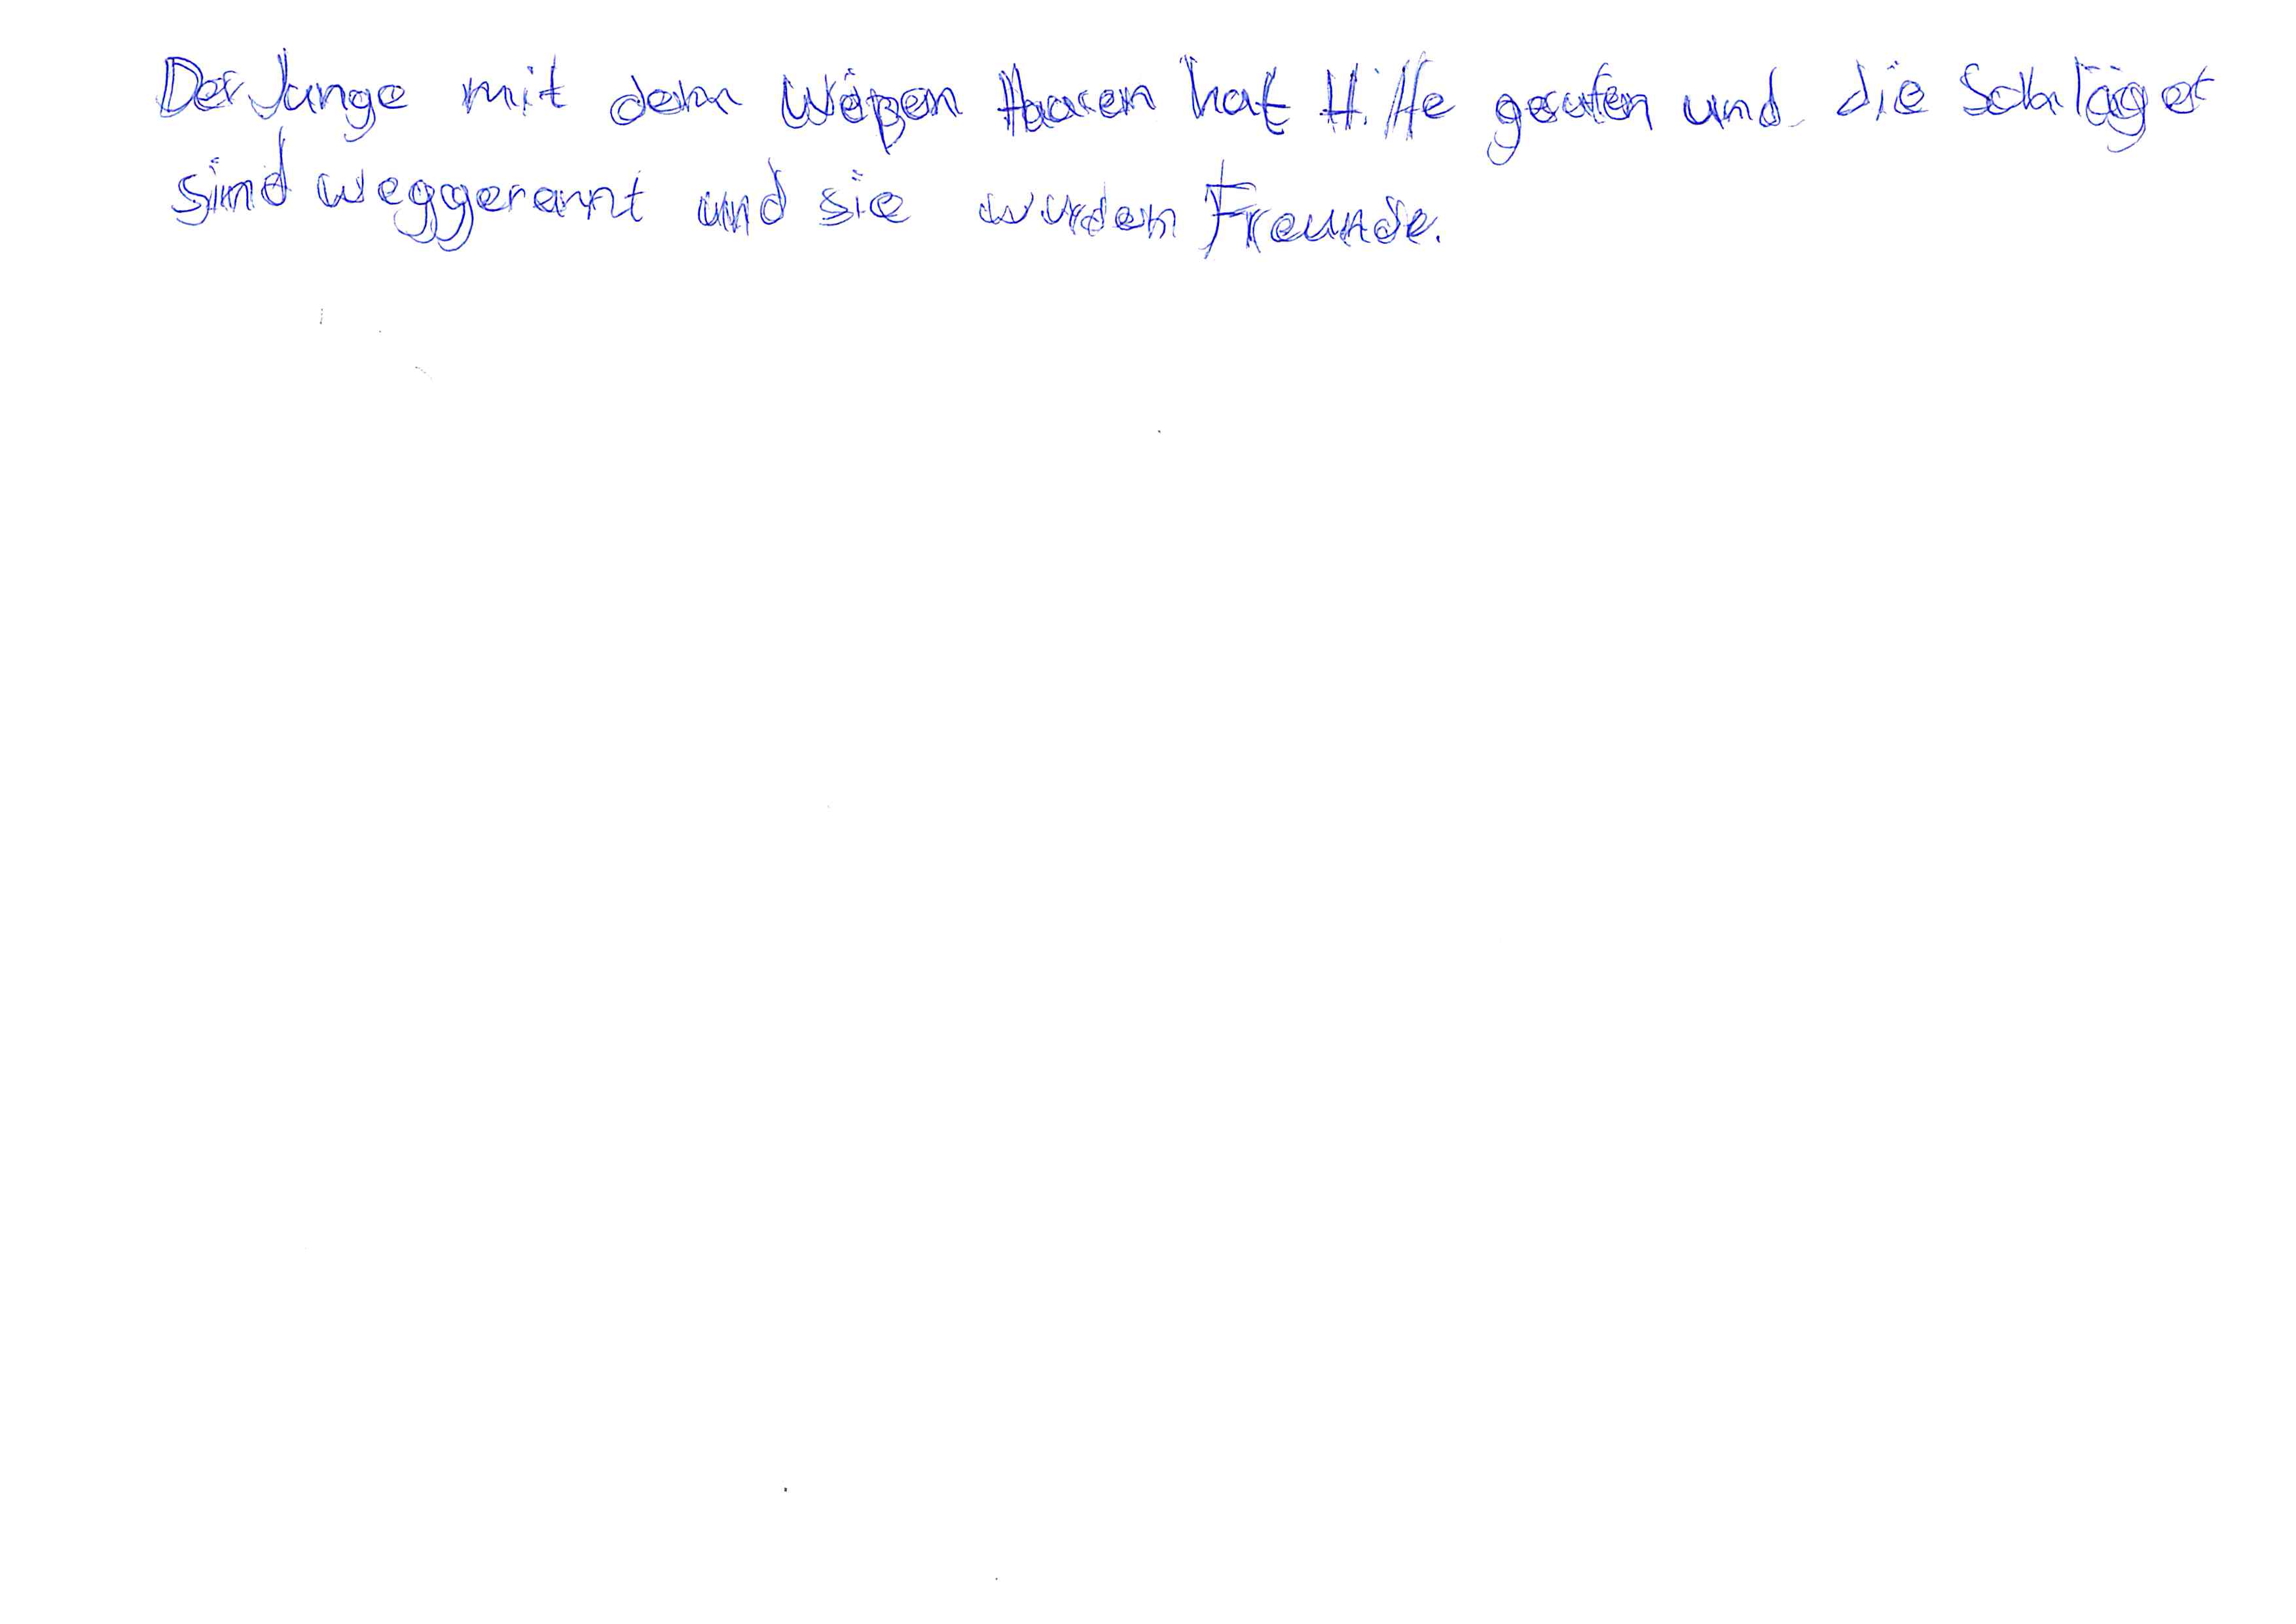 Der Junge mit dem Weißen Haaren hat Hilfe gerufen und die Schläger
sind weggerannt und sie wurden Freunde.